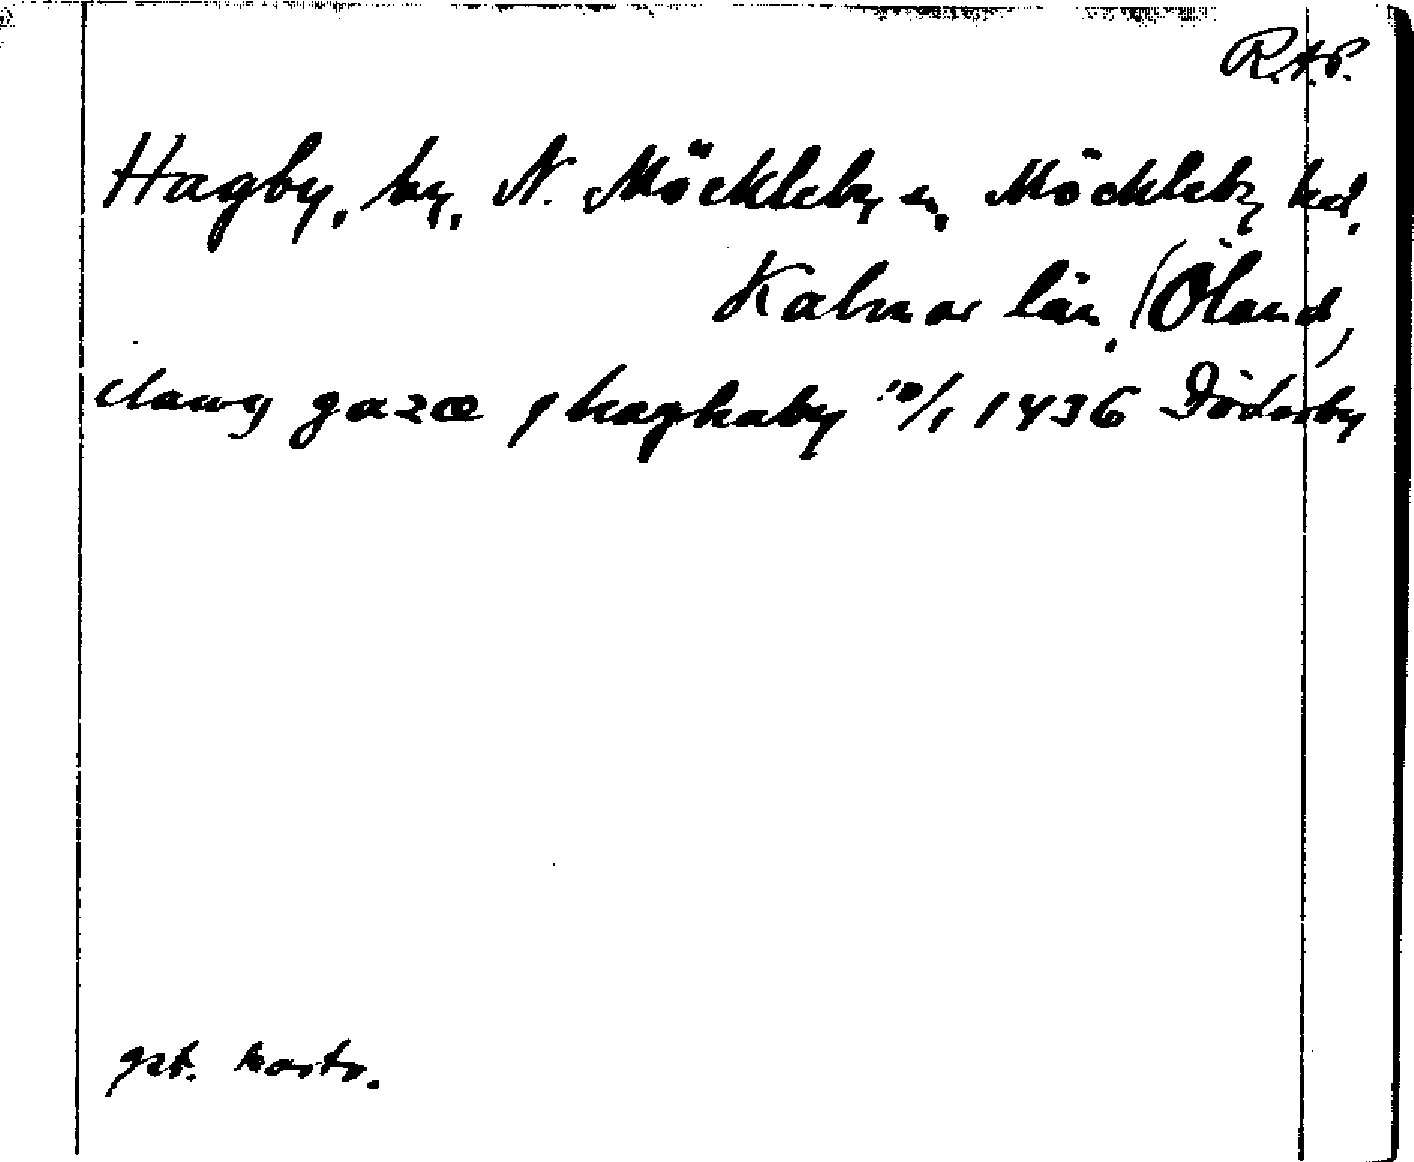 R.A.P.
Hagby, by, N. Möckleby sn, Möckleby hd,
Kalmar län, (Öland)
clawg gazæ j haghaby 10/1 1436 Döderby
gst. kort.